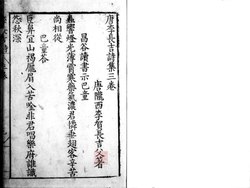 唐李長吉詩集三卷
唐隴西李賀長吉父著
昌谷讀書示巴童
蟲響燈光薄宵寒藥氣濃君憐垂翅客辛苦
尚相從
巴童荅
巨鼻宜山褐龐眉入苦吟非君唱樂府誰識
怨秋深